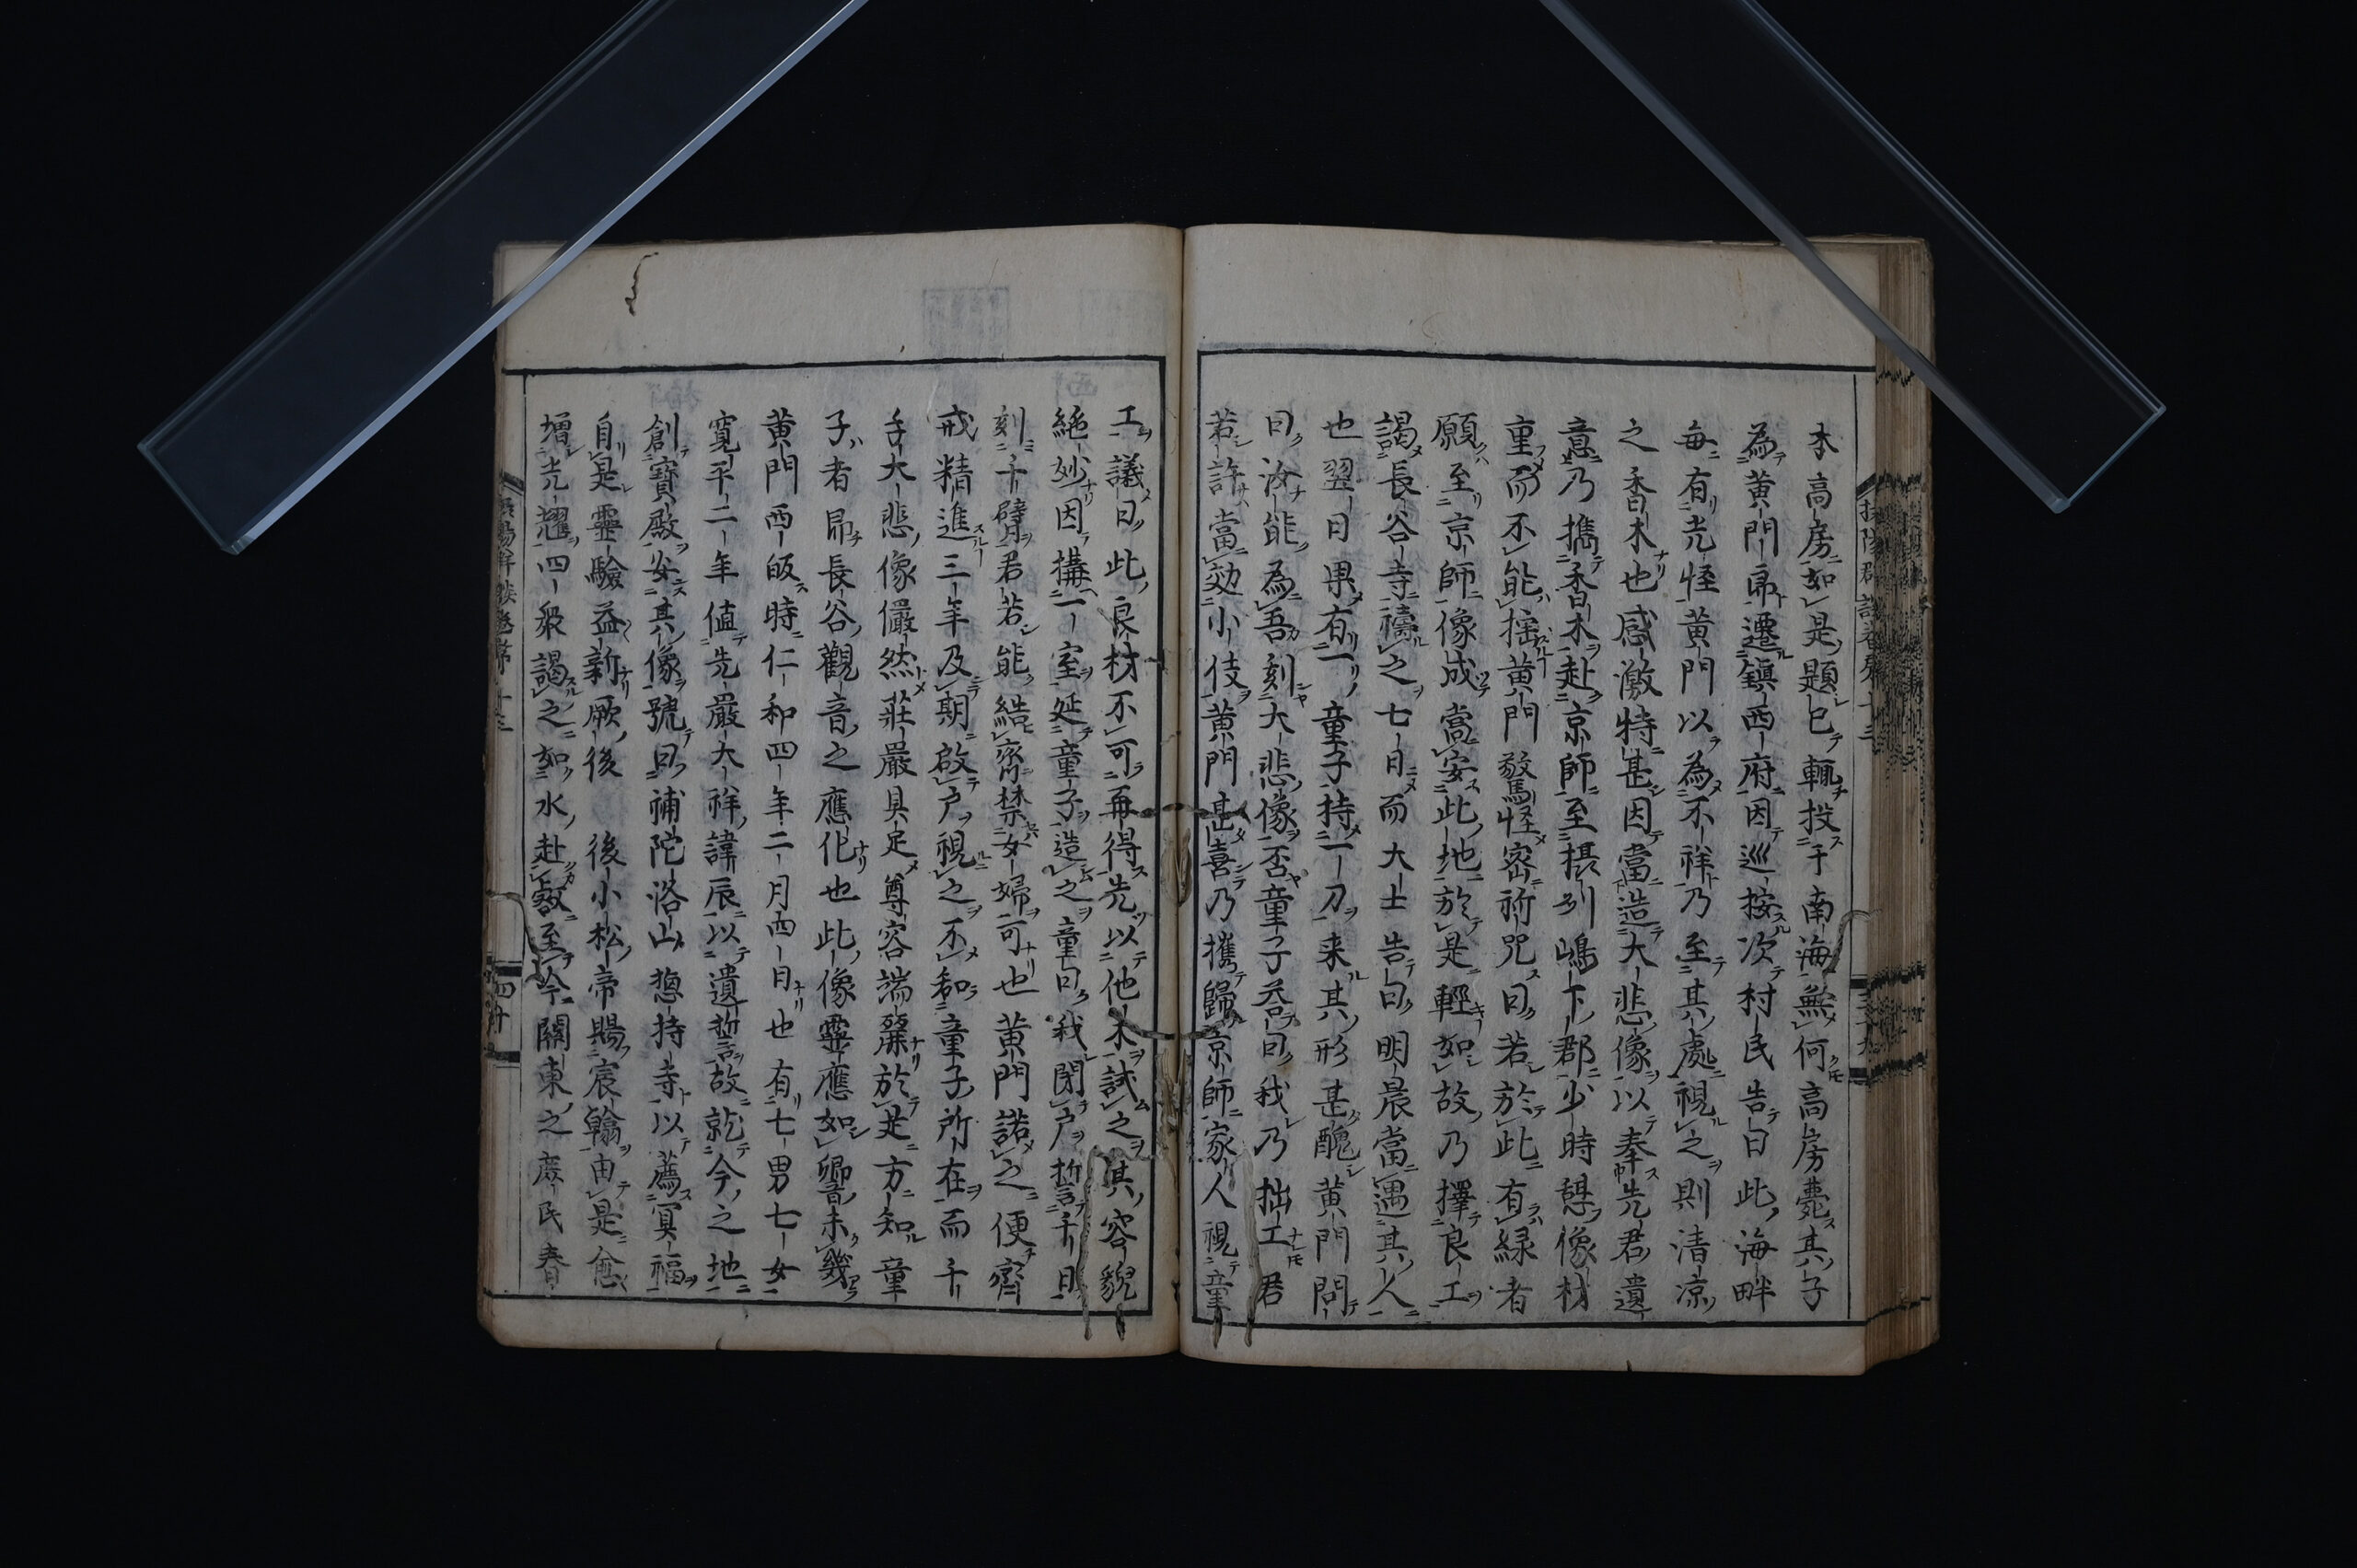 木高房如是題已輙投于南海無何高房薨其子
為黄門帥遷鎮西府因巡按次村民告曰此海畔
毎有光怪黄門以為不祥乃至其處視之則清凉
之香木也感激特甚因當造大悲像以奉先君遺
意乃攜香木赴京師至摂列嶋下郡少時憩像材
重而不能揺黄門驚怪密祈咒曰若於此有緑者
願至京師像成當安此地於是輕如故乃擇良工
謁長谷寺禱之七日而大士告曰明晨當遇其人
也翌日果有一童子持一刀来其形甚醜黄門問
曰汝能為吾刻大悲像否童子荅曰我乃拙工君
若許當效小伎黄門甚喜乃攜歸京師家人視童
工議曰此良材不可再得先以他木試之其容貌
絶妙因搆一室延童子造之童曰我閉戸誓千日
刻千臂君若能結齋禁女婦可也黄門諾之便齋
戒精進三年及期啟戸視之不和童子所在而千
手大悲像儼然莊嚴具足尊容端麗於是方知童
子者昴長谷觀音之應化也此像霊應如響未幾
黄門西皈時仁和四年二月四日也有七男七女
寛平二年值先嚴大祥諱辰以遺誓故就今之地
創寶殿安其像號曰補陀洛山惣持寺以薦冥福
自是霊驗益新厥後 後小松帝賜宸翰由是愈
増光耀四衆謁之如水赴壑至今關東之庶民春